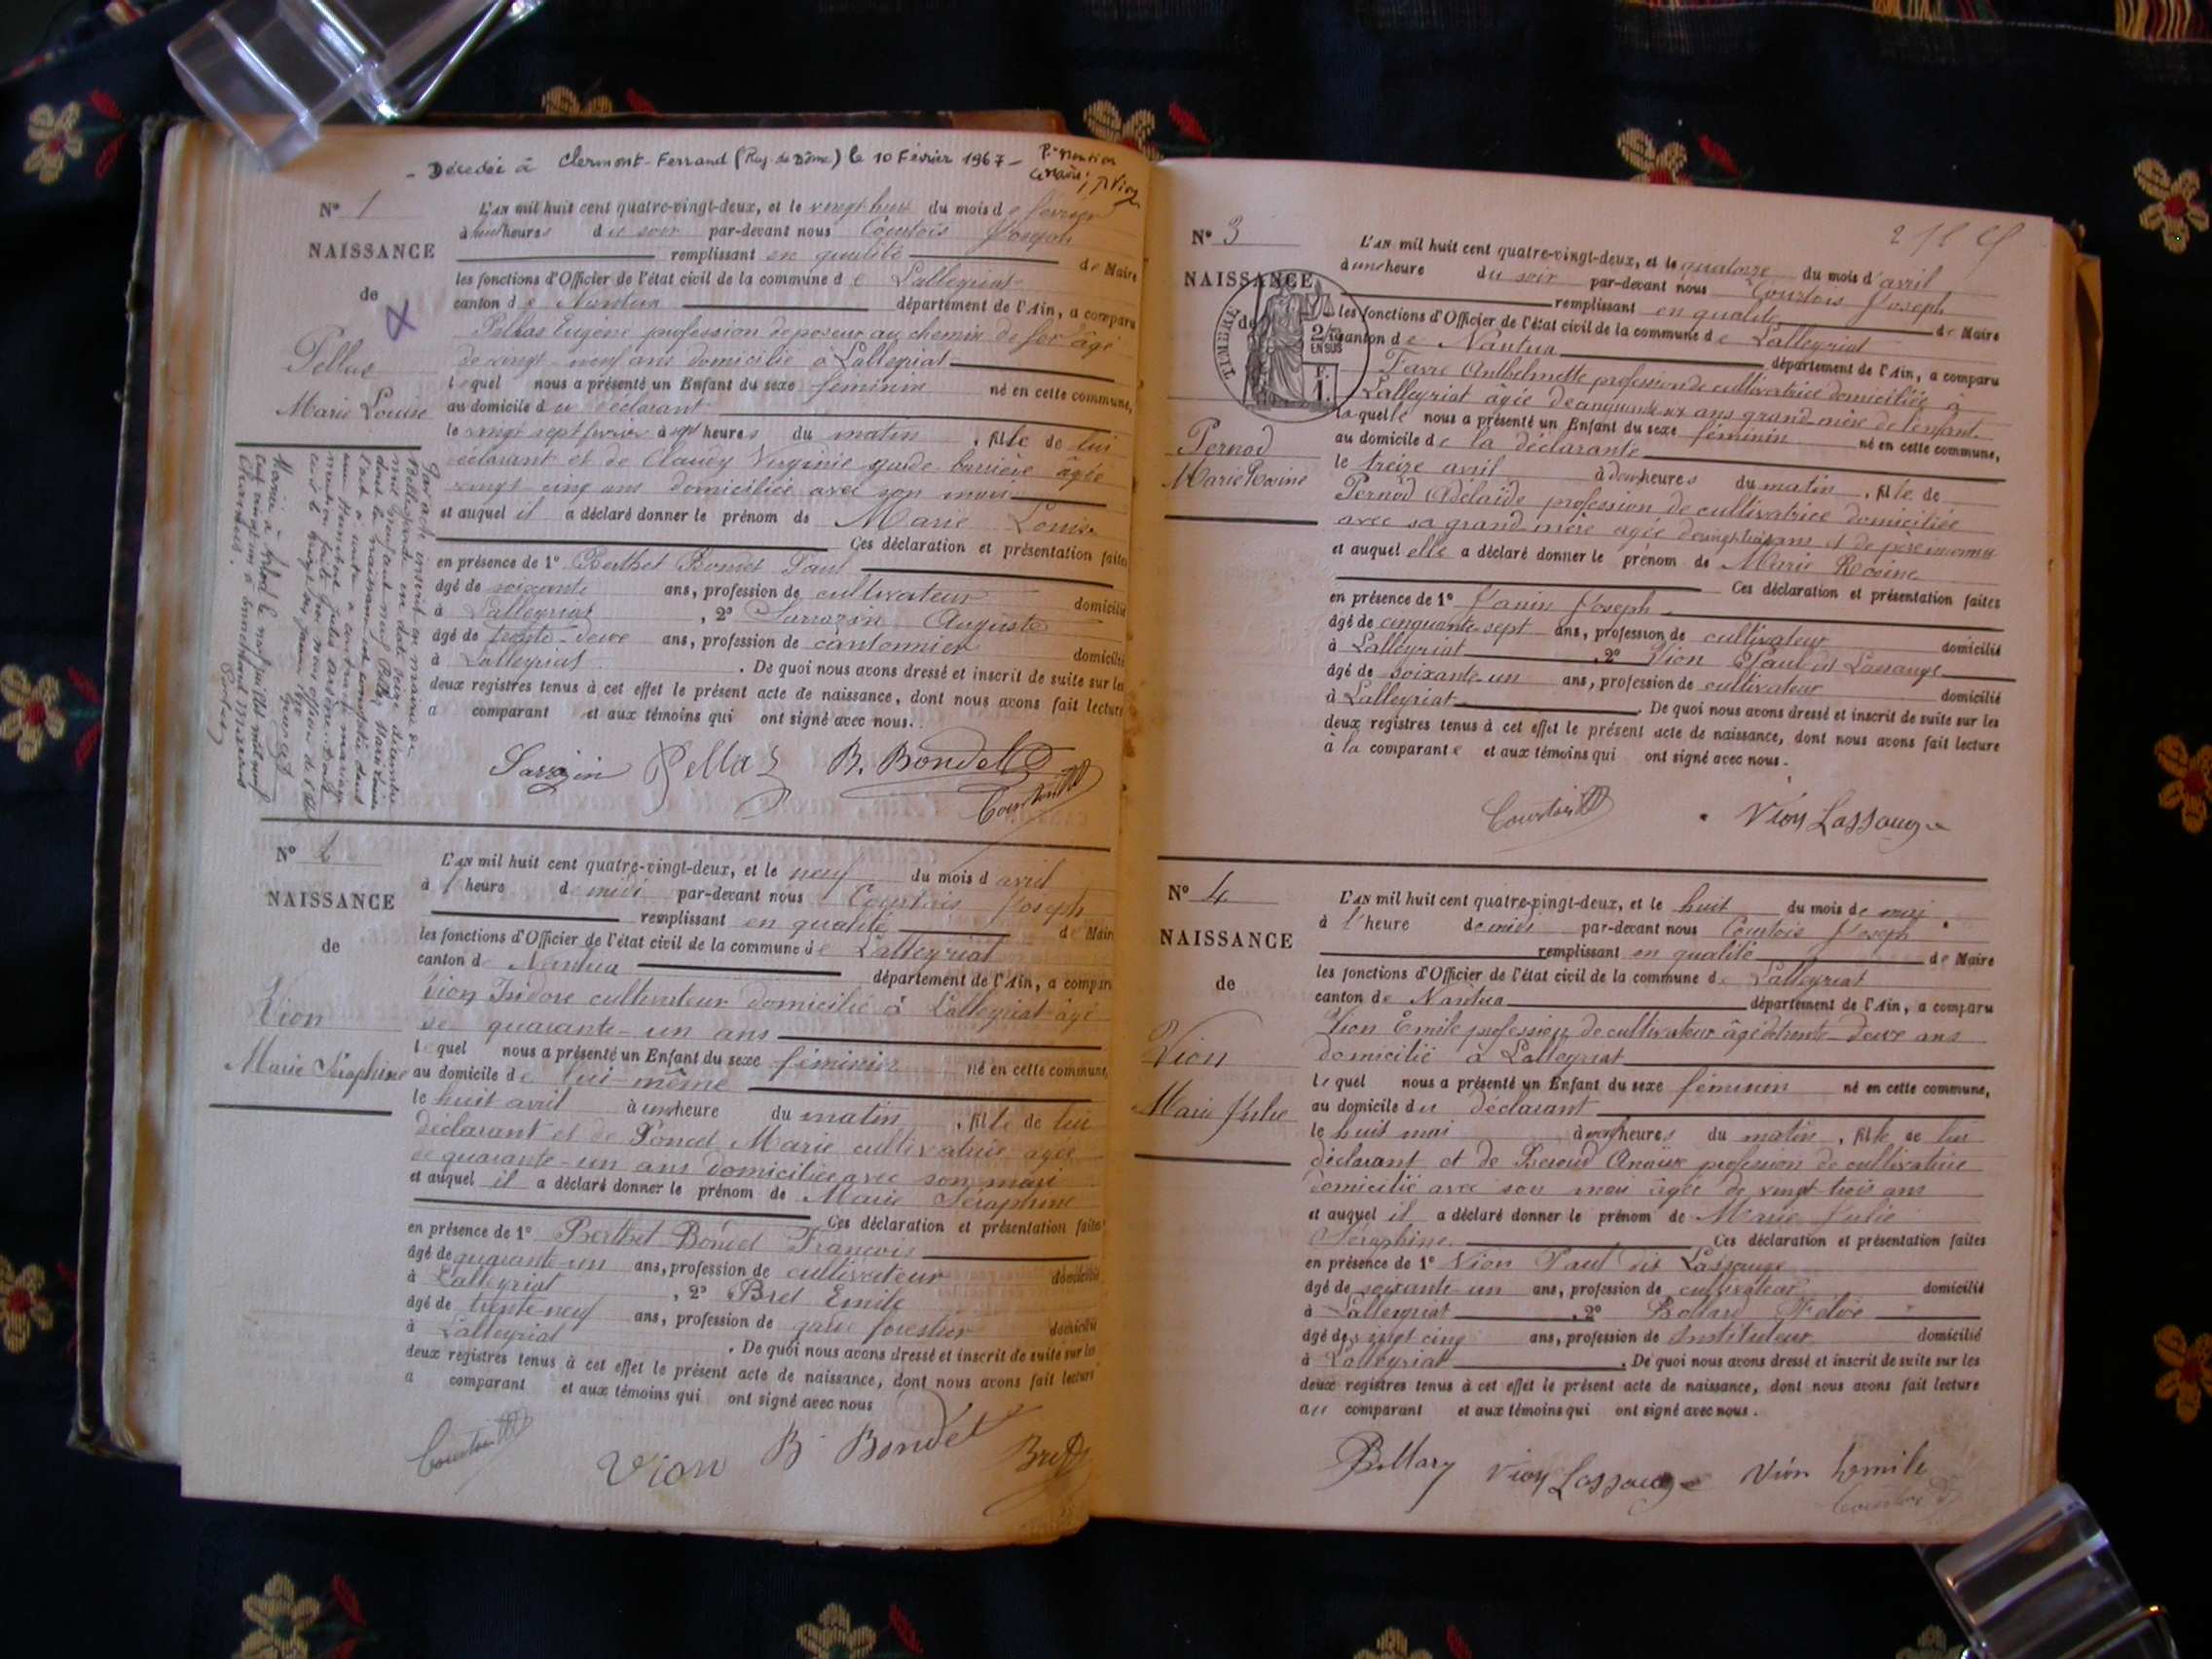 - Décédée à Clermont-Ferrand (Puy de Dôme) le 10 Février 1967 -
N° 1
NAISSANCE
de
Pellas
Marie Louise
L'AN mil huit cent quatre-vingt-deux, et le vingt huit du mois de février
à huit heures du soir par-devant nous Courtois Joseph
remplissant en qualité de Maire
les fonctions d'Officier de l'état civil de la commune de Lalleyriat
canton de Nantua département de l'Ain, a comparu
Pellas Eugène profession de poseur au chemin de fer âgé
de vingt-neuf ans domicilié à Lalleyriat
lequel nous a présenté un Enfant du sexe féminin né en cette commune,
au domicile du déclarant
le vingt sept février à sept heures du matin, fille de lui
déclarant et de Claudy Virginie garde barrière âgée
vingt cinq ans domiciliée avec son mari
et auquel il a déclaré donner le prénom de Marie Louise
Ces déclaration et présentation faites
en présence de 1° Berthet Bondet Paul
âgé de soixante ans, profession de cultivateur domicilié
à Lalleyriat, 2° Sarrazin Auguste
âgé de trente-deux ans, profession de cantonnier domicilié
à Lalleyriat. De quoi nous avons dressé et inscrit de suite sur les
deux registres tenus à cet effet le présent acte de naissance, dont nous avons fait lecture
a comparant et aux témoins qui ont signé avec nous.
Sarrazin Pellas B. Bondet
Courtois
N° 2
NAISSANCE
de
Vion
Marie Séraphine
L'AN mil huit cent quatre-vingt-deux, et le neuf du mois d avril
à l'heure de midi par-devant nous Courtois Joseph
remplissant en qualité de Maire
les fonctions d'Officier de l'état civil de la commune de Lalleyriat
canton de Nantua département de l'Ain, a comparu
Vion Isidore cultivateur domicilié à Lalleyriat âgé
de quarante-un ans
lequel nous a présenté un Enfant du sexe féminin né en cette commune,
au domicile de lui-même
le huit avril à une heure du matin, fille de lui
déclarant et de Poncet Marie cultivatrice âgée
de quarante-un ans domiciliée avec son mari
et auquel il a déclaré donner le prénom de Marie Séraphine
Ces déclaration et présentation faites
en présence de 1° Berthet Bondet François
âgé de quarante-un ans, profession de cultivateur domicilié
à Lalleyriat, 2° Bret Emile
âgé de trente-neuf ans, profession de garde forestier domicilié
à Lalleyriat. De quoi nous avons dressé et inscrit de suite sur les
deux registres tenus à cet effet le présent acte de naissance, dont nous avons fait lecture
a comparant et aux témoins qui ont signé avec nous
Courtois Vion B. Bondet Bret
N° 3
NAISSANCE
de
TIMBRE
2/10
EN SUS
Pernod
Marie Rosine
L'AN mil huit cent quatre-vingt-deux, et le quatorze du mois d'avril
à une heure du soir par-devant nous Courtois Joseph
remplissant en qualité de Maire
les fonctions d'Officier de l'état civil de la commune de Lalleyriat
canton de Nantua département de l'Ain, a comparu
Favre Anthelmette profession de cultivatrice domiciliée à
Lalleyriat âgée de ans grand-mère de l'enfant
laquelle nous a présenté un Enfant du sexe féminin né en cette commune,
au domicile de la déclarante
le treize avril à deux heures du matin, fille de
Pernod Adélaïde profession de cultivatrice domiciliée
avec sa grand mère âgée de ans et de père inconnu
et auquel elle a déclaré donner le prénom de Marie Rosine
Ces déclaration et présentation faites
en présence de 1° Janin Joseph
âgé de cinquante-sept ans, profession de cultivateur domicilié
à Lalleyriat, 2° Vion Paul dit Lassauge
âgé de soixante-un ans, profession de cultivateur domicilié
à Lalleyriat. De quoi nous avons dressé et inscrit de suite sur les
deux registres tenus à cet effet le présent acte de naissance, dont nous avons fait lecture
à la comparante et aux témoins qui ont signé avec nous.
Courtois Vion Lassauge
N° 4
NAISSANCE
de
Vion
Marie Julie
L'AN mil huit cent quatre-vingt-deux, et le huit du mois de mai
à l'heure de midi par-devant nous Courtois Joseph
remplissant en qualité de Maire
les fonctions d'Officier de l'état civil de la commune de Lalleyriat
canton de Nantua département de l'Ain, a comparu
Vion Emile profession de cultivateur âgé de trente-deux ans
domicilié à Lalleyriat
lequel nous a présenté un Enfant du sexe féminin né en cette commune,
au domicile du déclarant
le huit mai à heures du matin, fille de lui
déclarant et de Anaïse profession de cultivatrice
domicilié avec son mari âgée de vingt trois ans
et auquel il a déclaré donner le prénom de Marie Julie
Séraphine. Ces déclaration et présentation faites
en présence de 1° Vion Paul dit Lassauge
âgé de soixante-un ans, profession de cultivateur domicilié
à Lalleyriat, 2°
âgé de vingt cinq ans, profession de Instituteur domicilié
à Lalleyriat. De quoi nous avons dressé et inscrit de suite sur les
deux registres tenus à cet effet le présent acte de naissance, dont nous avons fait lecture
au comparant et aux témoins qui ont signé avec nous.
Vion Lassauge Vion Emile
Courtois